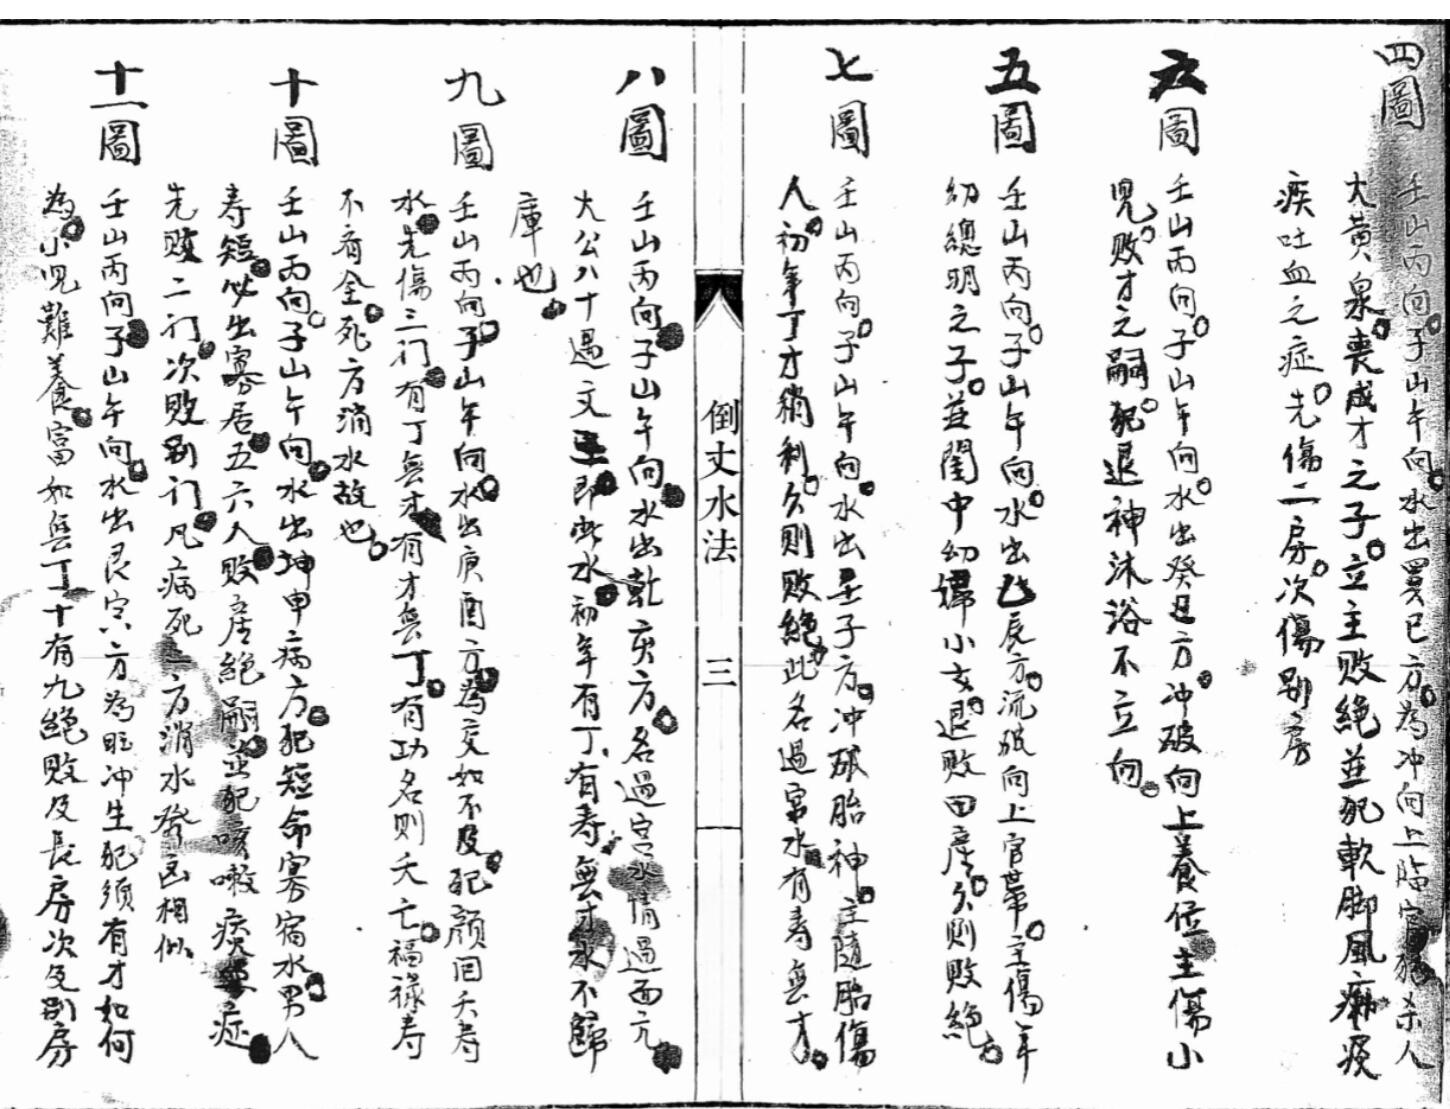 四圖
壬山丙向子山午向水出巽巳方為冲向上臨官犯杀人
大黄泉喪成才之子立主敗絶並犯軟脚風癱痰
疾吐血之症先傷二房次傷别房
六圖
壬山丙向子山午向水出癸丑方冲破向上養位主傷小
児敗才之嗣犯退神沐浴不立向
五圖
壬山丙向子山午向水出乙辰方流破向上官帯主傷年
幼總明之子並閨中幼婦小女退敗田産久則敗絶
七圖
壬山丙向子山午向水出壬子方冲破胎神主隨胎傷
人初年丁才稍利久則敗絶此名過宫水有寿無才
倒丈水法
三
八圖
壬山丙向子山午向水出乾亥方名過宫水情過而亢
大公八十遇文王即此水初年有丁有寿無才水不歸
庫也
九圖
壬山丙向子山午向水出庚酉方為交如不及犯顔回夭寿
水先傷三门有丁無才有才無丁有功名則夭亡福禄寿
不有全死方消水故也
十圖
壬山丙向子山午向水出坤申病方犯短命寡宿水男人
寿短必出寡居五六人敗産絶嗣並犯咳嗽痰症
先敗二门次敗别门凡病死二方消水祭凶相似
十一圖
壬山丙向子山午向水出艮寅方為旺冲生犯須有才如何
為小児難養富如無丁十有九絶敗及長房次及别房